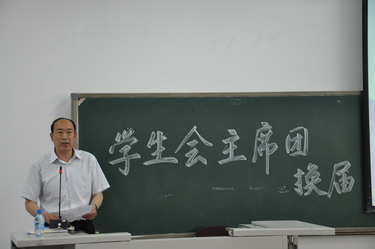 学生会主席团
换届